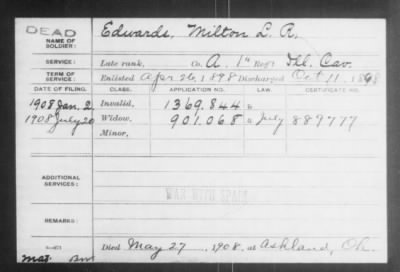 DEAD
NAME OF SOLDIER: Edwards, Milton L. R.
SERVICE: Late rank, Co. A. 1" Reg't Ill. Cav.
TERM OF SERVICE: Enlisted Apr. 26, 1898 Discharged Oct. 11. 1898
DATE OF FILING. CLASS. APPLICATION NO. LAW. CERTIFICATE NO.
1908 Jan. 2 Invalid, 1369.844
1908 July 20 Widow, 901.068 July 889777
Minor,
ADDITIONAL SERVICES:
WAR WITH SPAIN
REMARKS:
Died May 27, 1908, at Ashland, Oh.